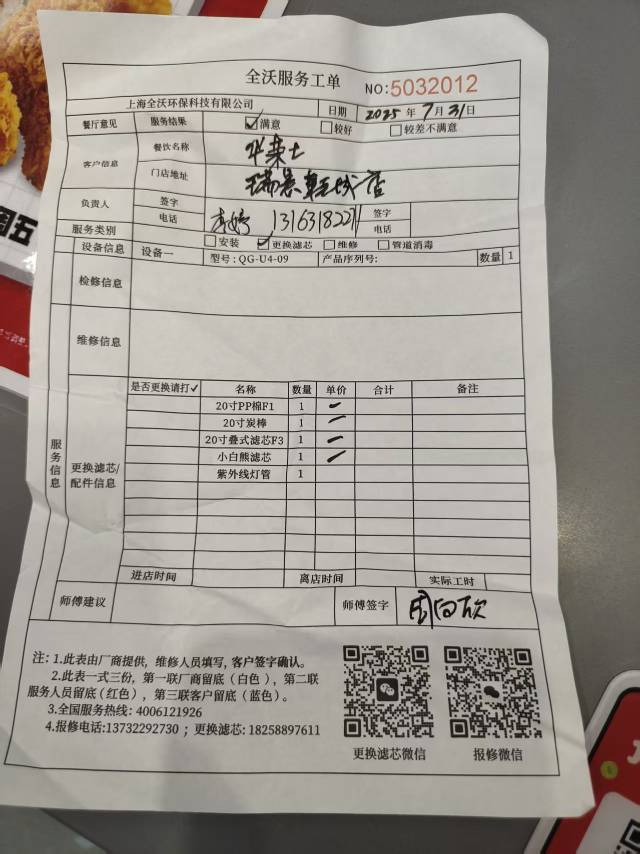 全沃服务工单 NO:5032012
上海全沃环保科技有限公司 日期 2025 年 7 月 31 日
餐厅意见 服务结果 ☑满意 □较好 □较差不满意
客户信息 餐饮名称 华莱士
门店地址 瑞景第五城店
负责人 签字 电话 李婷 签字 电话
服务类别 □安装 ☑更换滤芯 □维修 □管道消毒
设备信息 设备一 型号: QG-U4-09 产品序列号: 数量 1
检修信息
维修信息
服务信息
更换滤芯/配件信息
是否更换请打✓ 名称 数量 单价 合计 备注
20寸PP棉F1 1 一
20寸炭棒 1 一
20寸叠式滤芯F3 1 一
小白熊滤芯 1 一
紫外线灯管 1
进店时间 离店时间 实际工时
师傅建议 师傅签字
注: 1.此表由厂商提供, 维修人员填写, 客户签字确认。
2.此表一式三份, 第一联厂商留底 (白色), 第二联
服务人员留底 (红色), 第三联客户留底 (蓝色)。
3.全国服务热线: 4006121926
4.报修电话:13732292730 ; 更换滤芯: 18258897611
更换滤芯微信 报修微信
周五